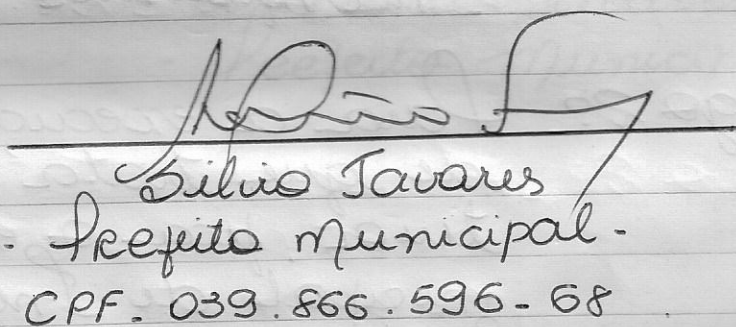 Silvio Tavares
- Prefeito Municipal -
CPF. 039.866.596-68